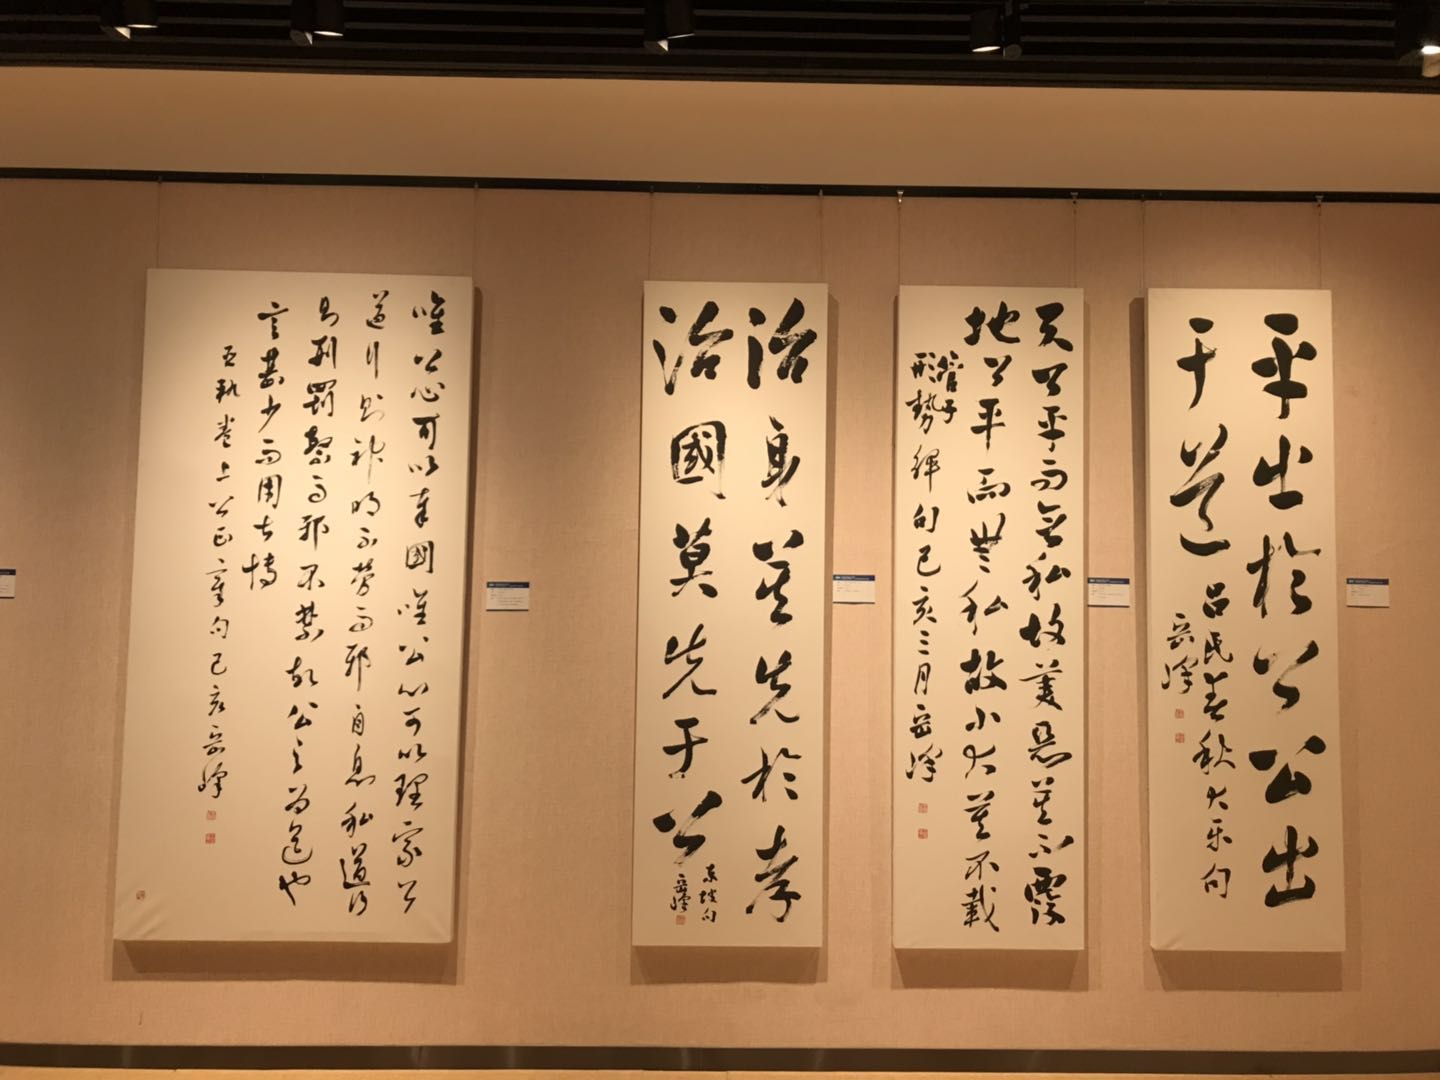 平出於公公出
于道
吕氏春秋大乐句
岳峰
天公平而無私故美惡莫不覆
地公平而無私故小大莫不載
管子
形勢解句己亥三月岳峰
治身莫先於孝
治國莫先于公
東坡句
岳峰
唯公心可以奉國唯公心可以理家公
道行則神明不勞而邪自息私道行
則刑罰繁而邪不禁故公之為道也
言甚少而用甚博
臣軌卷上公正章句己亥岳峰